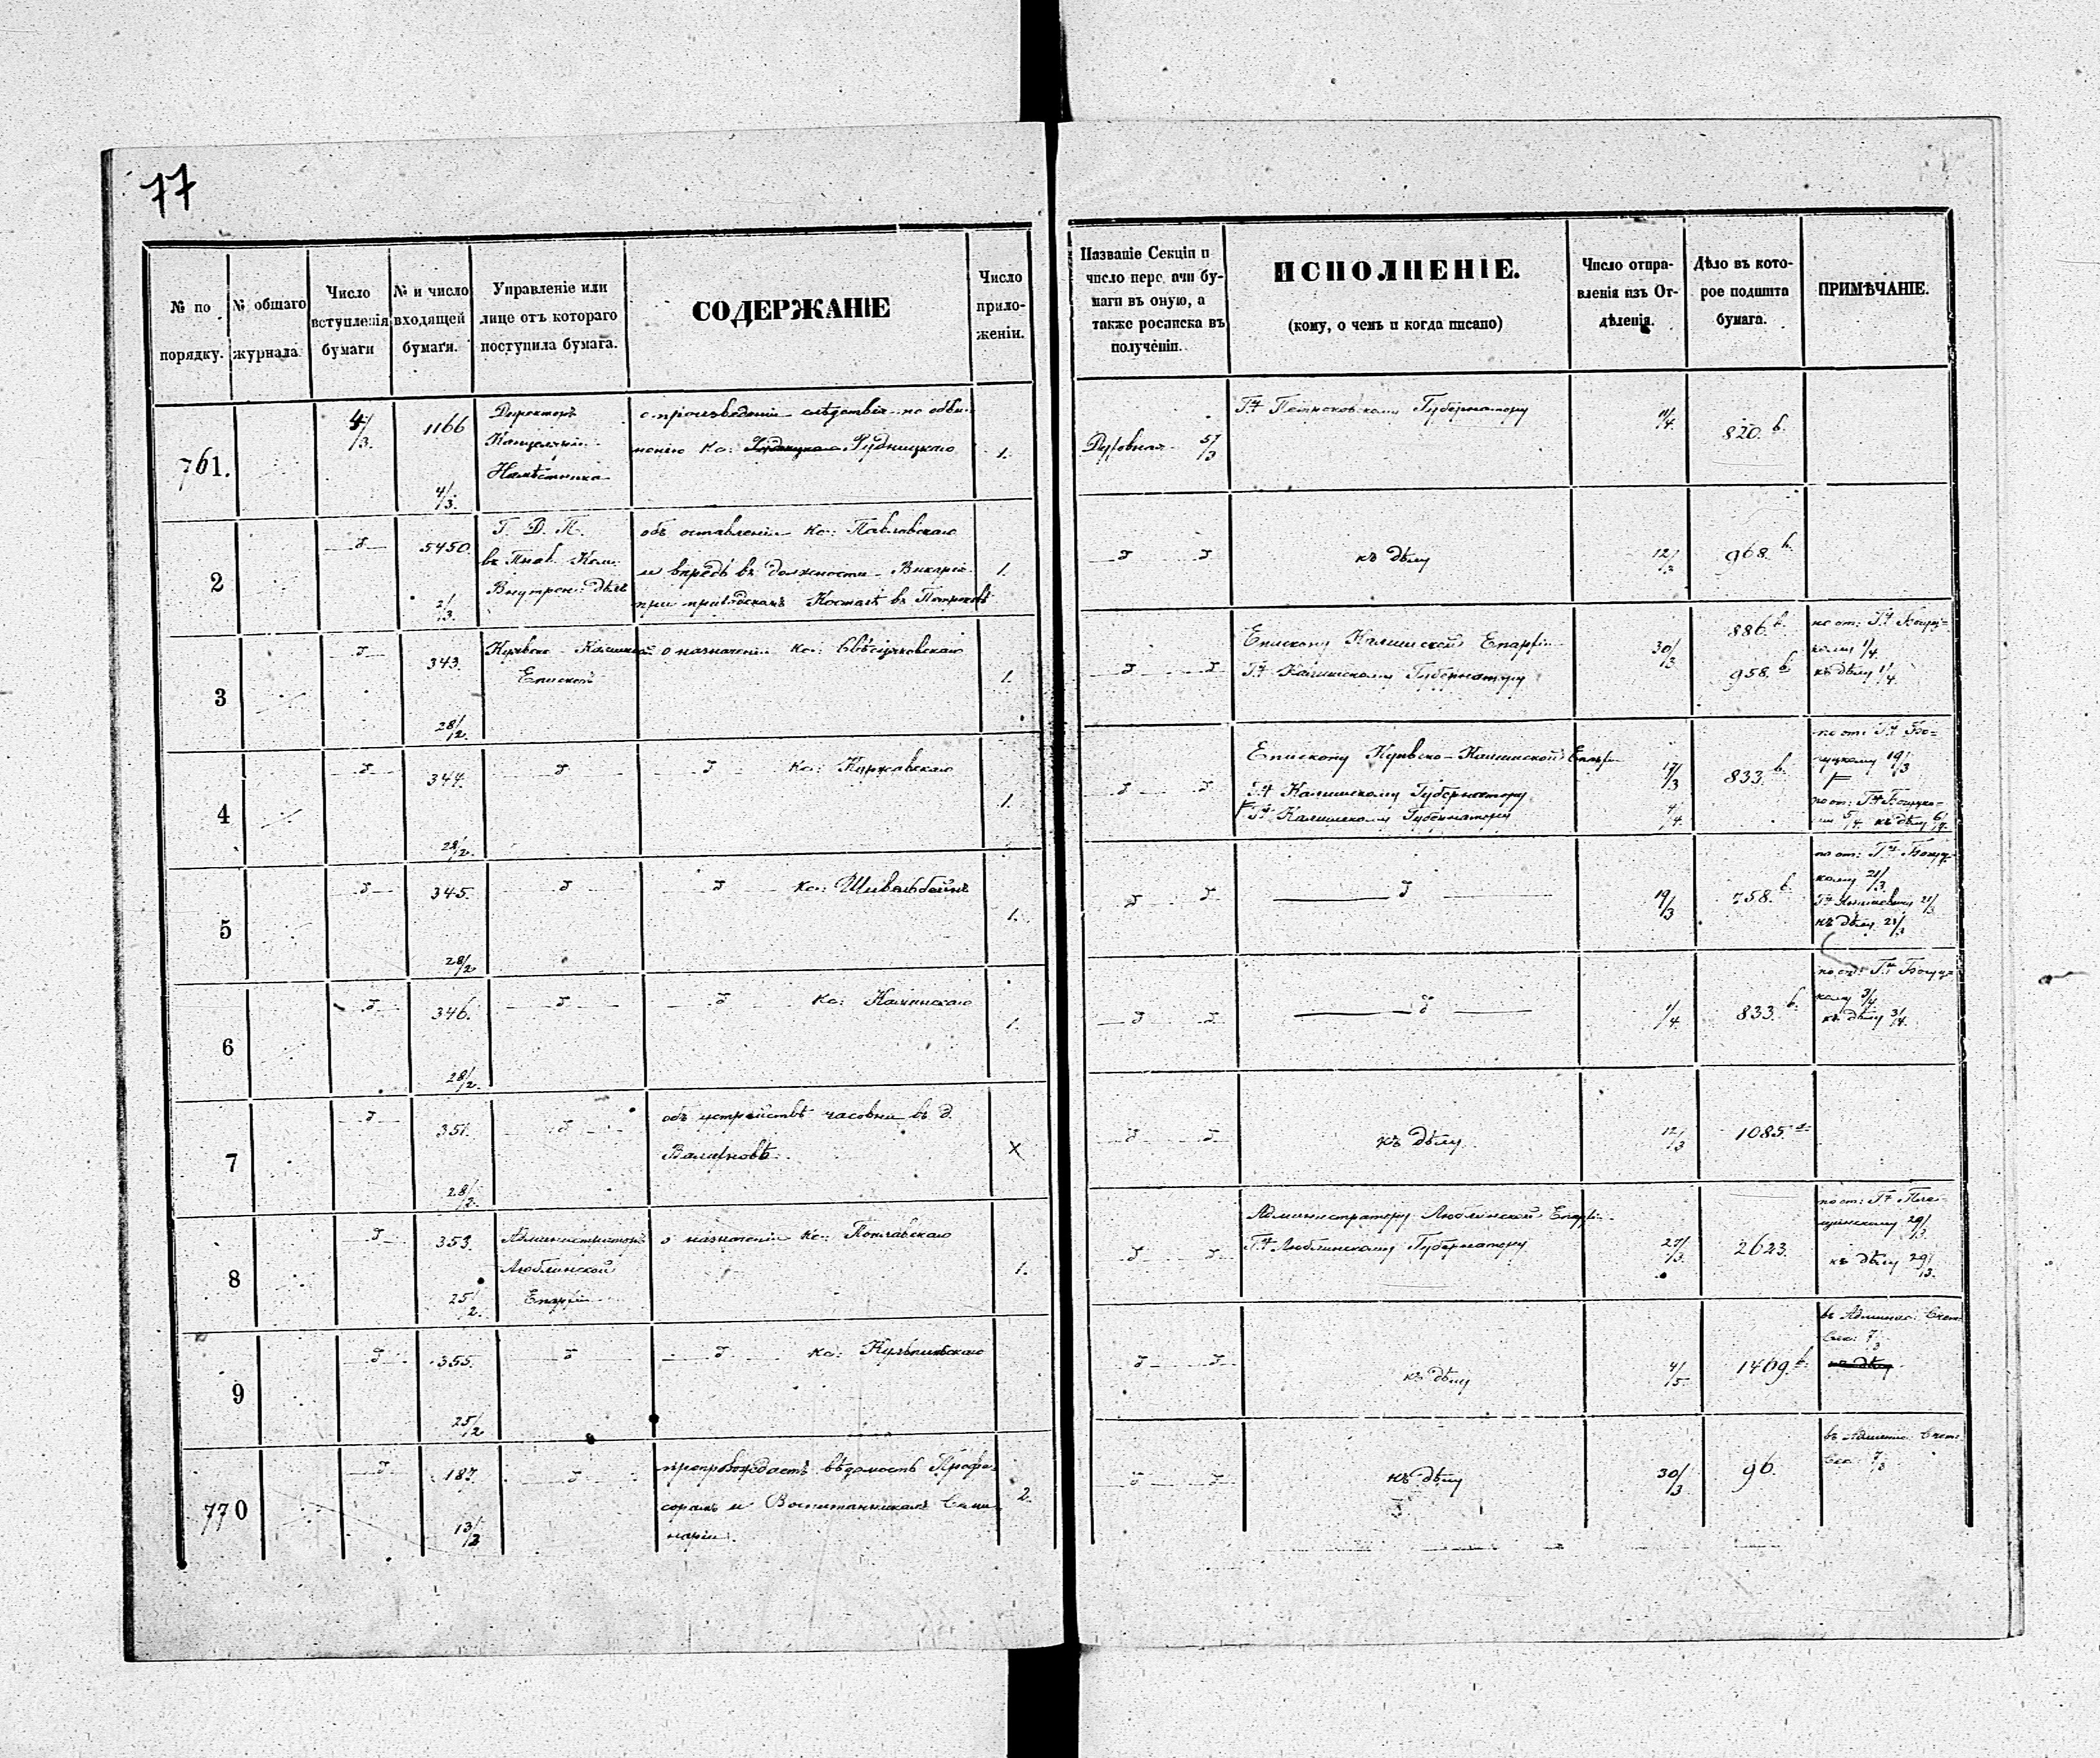 77
№ по порядку.
№ общаго журнала.
Число вступленія бумаги
№ и число входящей бумаги.
Управленіе или лице отъ котораго поступила бумага.
СОДЕРЖАНІЕ
Число приложеній.
Названіе Секціи и число перед ачи бумаги въ оную, а также росписка въ полученіи.
ИСПОЛНЕНІЕ.
(кому, о чемъ и когда писано)
Число отправленія изъ Отдѣленія.
Дѣло въ которое подшита бумага.
ПРИМѢЧАНІЕ.
761.
4/3.
1166
4/3.
Директоръ
Канцеляріи
Намѣстника
о произведеніи слѣдствія по обви-
ненію Кс: Рудницкаго
1.
Духовная 5/3
Гну Петроковскому Губернатору
11/4.
820. b.
2
д
5450.
2/3.
Г. Д. П.
въ Прав. Ком.
Внутрен: Дѣлъ
объ оставленіи Кс: Павловскаго
и впредь въ должности Викарія
при приходскомъ Костелѣ въ Петроковѣ
1.
д д
къ дѣлу
12/3
968. b.
3
д
343.
28/2.
Куявско-Калишскій
Епископъ
о назначеніи Кс:
1.
д д
Епископу Калишской Епархіи
Гну Калишскому Губернатору
30/3
886. b.
958. b.
по от: Гну Богуц-
кому 1/4
къ дѣлу 1/4.
4
д
344.
28/2.
д
д Кс: Куржавскаго
1.
д д
Епископу Куявско-Калишской Епархіи
Гну Калишскому Губернатору
Гну Калишскому Губернатору
17/3
4/4.
833. b.
по от: Гну Бо-
гуцкому 19/3
по от: Гну Богуцко-
му 5/4. къ дѣлу 6/4.
5
д
345.
28/2
д
д Кс: Шивельбейнъ
1.
д д
д
19/3
758. b.
по от: Гну Богуц-
кому 21/3.
Гну 21/3
къ дѣлу 21/3
6
д
346.
28/2.
д
д Кс: Калинскаго
1.
д д
д
1/4.
833. b.
по от: Гну Богуц-
кому 3/4
къ дѣлу 3/4.
7
д
351.
28/2.
д
объ устройствѣ часовни въ д.
X
д д
къ дѣлу.
12/3
1085.
8
д
353.
25/2.
Администраторъ
Люблинской
Епархіи
о назначеніи Кс: Поплавскаго
1.
д д
Администратору Люблинской Епархіи
Гну Люблинскому Губернатору
27/3.
2623.
по от: Гну
29/3.
къ дѣлу 29/3.
9
д
355.
25/2
д
д Кс:
д д
къ дѣлу
4/5
1469. b.
въ Админис:
Сек: 7/3
къ дѣлу
770
д
187.
13/2
д
препровождаетъ вѣдомость Профе-
сорамъ и Воспитанникамъ Семи-
наріи.
2.
д д
къ дѣлу
30/3
96.
въ Админис:
Сек: 7/3